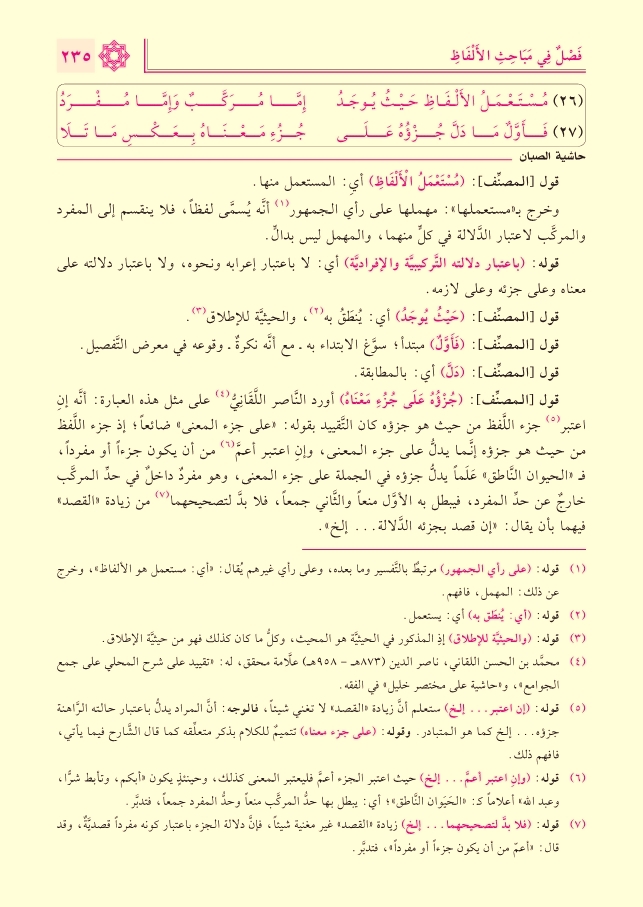 فَصْلٌ فِي مَبَاحِثِ الأَلْفَاظِ
٢٣٥
(٢٦) مُسْتَعْمَلُ الأَلْفَاظِ حَيْثُ يُوجَدُ إِمَّا مُرَكَّبٌ وَإِمَّا مُفْرَدُ
(٢٧) فَأَوَّلٌ مَا دَلَّ جُزْؤُهُ عَلَى جُزْءِ مَعْنَاهُ بِعَكْسِ مَا تَلَا
حاشية الصبان
قول [المصنِّف]: (مُسْتَعْمَلُ الْأَلْفَاظِ) أي: المستعمل منها.
وخرج بـ«مستعملها»: مهملها على رأي الجمهور(١) أنَّه يُسمَّى لفظاً، فلا ينقسم إلى المفرد
والمركَّب لاعتبار الدَّلالة في كلٍّ منهما، والمهمل ليس بدالٍّ.
قوله: (باعتبار دلالته التَّركيبيَّة والإفراديَّة) أي: لا باعتبار إعرابه ونحوه، ولا باعتبار دلالته على
معناه وعلى جزئه وعلى لازمه.
قول [المصنِّف]: (حَيْثُ يُوجَدُ) أي: يُنطَقُ به(٢)، والحيثيَّة للإطلاق(٣).
قول [المصنِّف]: (فَأَوَّلٌ) مبتدأ؛ سوَّغ الابتداء به ـ مع أنَّه نكرةٌ ـ وقوعه في معرض التَّفصيل.
قول [المصنِّف]: (دَلَّ) أي: بالمطابقة.
قول [المصنِّف]: (جُزْؤُهُ عَلَى جُزْءِ مَعْنَاهُ) أورد النَّاصر اللَّقَانِيُّ(٤) على مثل هذه العبارة: أنَّه إنِ
اعتبر(٥) جزء اللَّفظ من حيث هو جزؤه كان التَّقييد بقوله: «على جزء المعنى» ضائعاً؛ إذ جزء اللَّفظ
من حيث هو جزؤه إنَّما يدلُّ على جزء المعنى، وإنِ اعتبر أعمَّ(٦) من أن يكون جزءاً أو مفرداً،
فـ «الحيوان النَّاطق» عَلَماً يدلُّ جزؤه في الجملة على جزء المعنى، وهو مفردٌ داخلٌ في حدِّ المركَّب
خارجٌ عن حدِّ المفرد، فيبطل به الأوَّل منعاً والثَّاني جمعاً، فلا بدَّ لتصحيحهما(٧) من زيادة «القصد»
فيهما بأن يقال: «إن قصد بجزئه الدَّلالة... إلخ».
(١) قوله: (على رأي الجمهور) مرتبطٌ بالتَّفسير وما بعده، وعلى رأي غيرهم يُقال: «أي: مستعمل هو الألفاظ»، وخرج
عن ذلك: المهمل، فافهم.
(٢) قوله: (أي: يُنطَق به) أي: يستعمل.
(٣) قوله: (والحيثيَّة للإطلاق) إذِ المذكور في الحيثيَّة هو المحيث، وكلُّ ما كان كذلك فهو من حيثيَّة الإطلاق.
(٤) محمَّد بن الحسن اللقاني، ناصر الدين (٨٧٣هـ - ٩٥٨هـ) علَّامة محقق، له: «تقييد على شرح المحلي على جمع
الجوامع»، و«حاشية على مختصر خليل» في الفقه.
(٥) قوله: (إن اعتبر... إلخ) ستعلم أنَّ زيادة «القصد» لا تغني شيئاً، فالوجه: أنَّ المراد يدلُّ باعتبار حالته الرَّاهنة
جزؤه... إلخ كما هو المتبادر. وقوله: (على جزء معناه) تتميمٌ للكلام بذكر متعلِّقه كما قال الشَّارح فيما يأتي،
فافهم ذلك.
(٦) قوله: (وإن اعتبر أعمَّ... إلخ) حيث اعتبر الجزء أعمَّ فليعتبر المعنى كذلك، وحينئذٍ يكون «أبكم، وتأبط شرًّا،
وعبد الله» أعلاماً كـ: «الحَيَوان النَّاطق»؛ أي: يبطل بها حدُّ المركَّب منعاً وحدُّ المفرد جمعاً، فتدبَّر.
(٧) قوله: (فلا بدَّ لتصحيحهما... إلخ) زيادة «القصد» غير مغنية شيئاً، فإنَّ دلالة الجزء باعتبار كونه مفرداً قصديَّةٌ، وقد
قال: «أعمّ من أن يكون جزءاً أو مفرداً»، فتدبَّر.